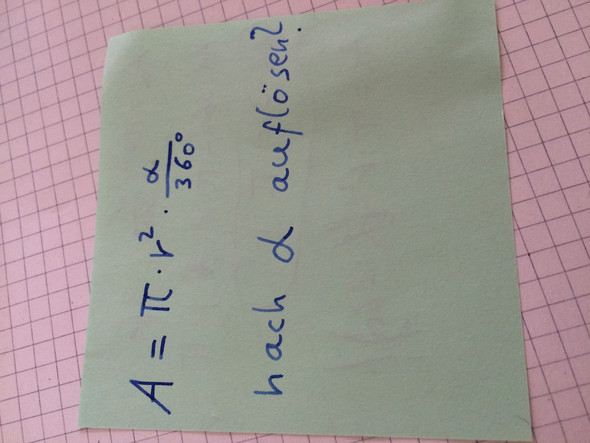 A = π · r² · α/360°
nach α auflösen?